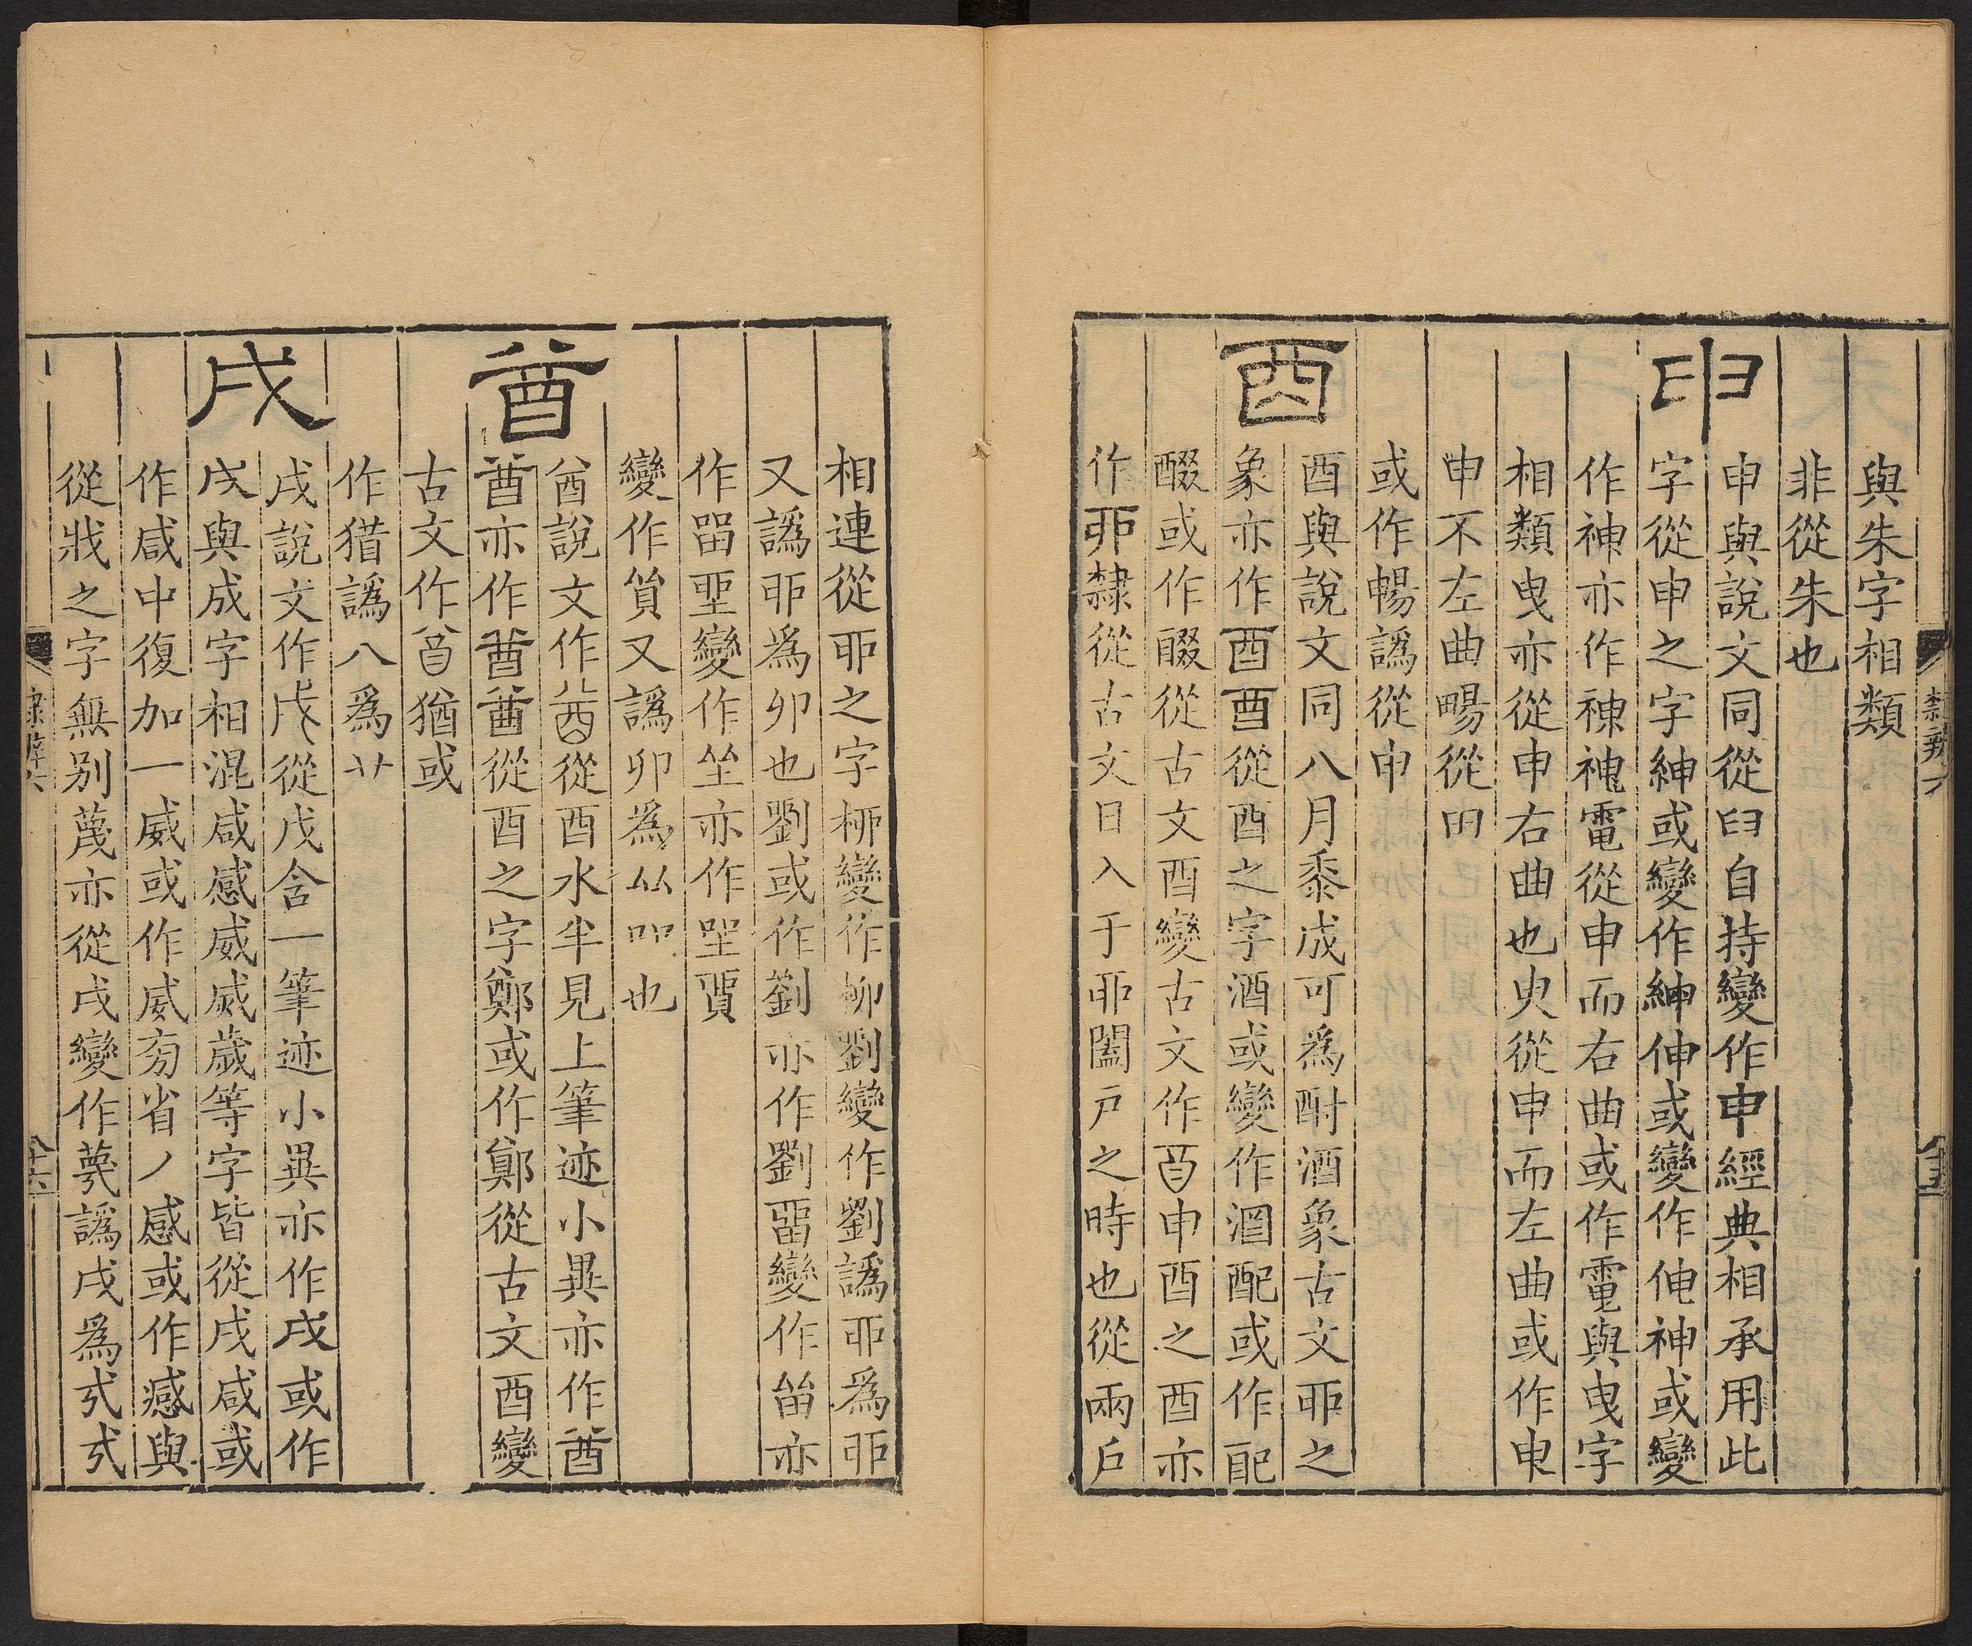 與朱字相類
非從朱也
申
申與說文同從𦥑自持變作申經典相承用此
字從申之字紳或變作紳伸或變作伸神或變
作神亦作神電從申而右曲或作電與曳字
相類曳亦從申右曲也臾從申而左曲或作申
申不左曲暢從田
或作暢譌從申
酉
酉與說文同八月黍成可爲酎酒象古文丣之
象亦作酉酉從酉之字酒或變作酒配或作配
醊或作醊從古文酉變古文作申酉之酉亦
作丣隸從古文日入于丣闔戶之時也從兩戶
相連從丣之字桺變作柳劉變作劉譌丣爲丣
又譌丣爲卯也劉或作劉亦作劉畱變作畄亦
作畱坙變作坐亦作坙貿
變作貿又譌卯爲吅也
酋
酋說文作酋從酉水半見上筆迹小異亦作酋
酋亦作酋酋從酉之字鄭或作鄭從古文酉變
古文作猶或
作猎譌八爲
戌
戌說文作戌從戊含一筆迹小異亦作戌或作
戌與成字相混咸感威烕歲等字皆從戌咸或
作咸中復加一威或作威旁省丿感或作感與
從戕之字無别蔑亦從戌變作蔑譌戌爲弍弍